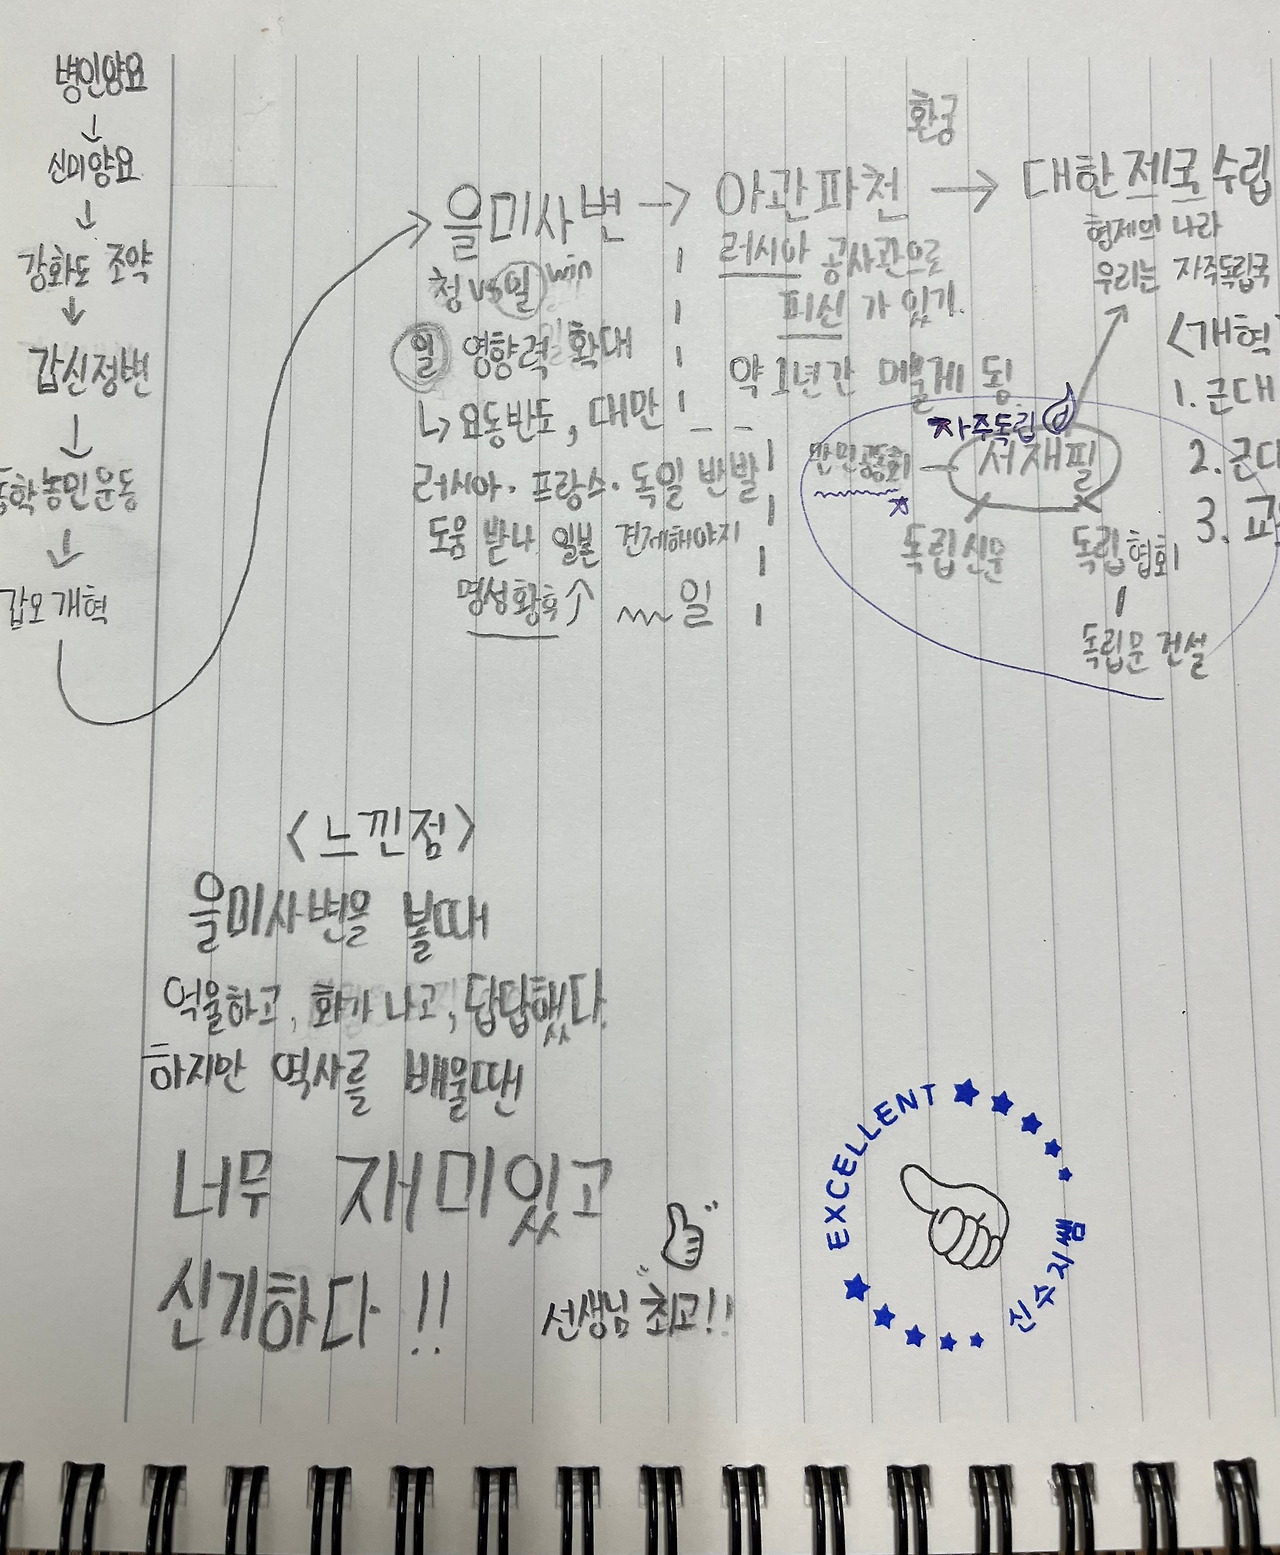 병인양요
↓
신미양요
↓
강화도 조약
↓
갑신정변
↓
동학농민운동
↓
갑오개혁
을미사변 →
청 vs 일 win
일 영향력 확대
↳ 요동반도, 대만
러시아·프랑스·독일 반발
도움 받나 일본 견제해야지
명성황후↑ 일
아관파천 →
러시아 공사관으로
피신 가 있기.
약 1년간 머물게 됨.
환궁
대한제국 수립
형제의 나라
우리는 자주독립국
<개혁
1. 근대
2. 근대
3. 교
자주독립
만민공동회 서재필
독립신문 독립협회
독립문 건설
<느낀점>
을미사변을 볼때
억울하고, 화가 나고, 답답했다.
하지만 역사를 배울땐
너무 재미있고
신기하다!!
선생님 최고!!
EXCELLENT
신수지쌤